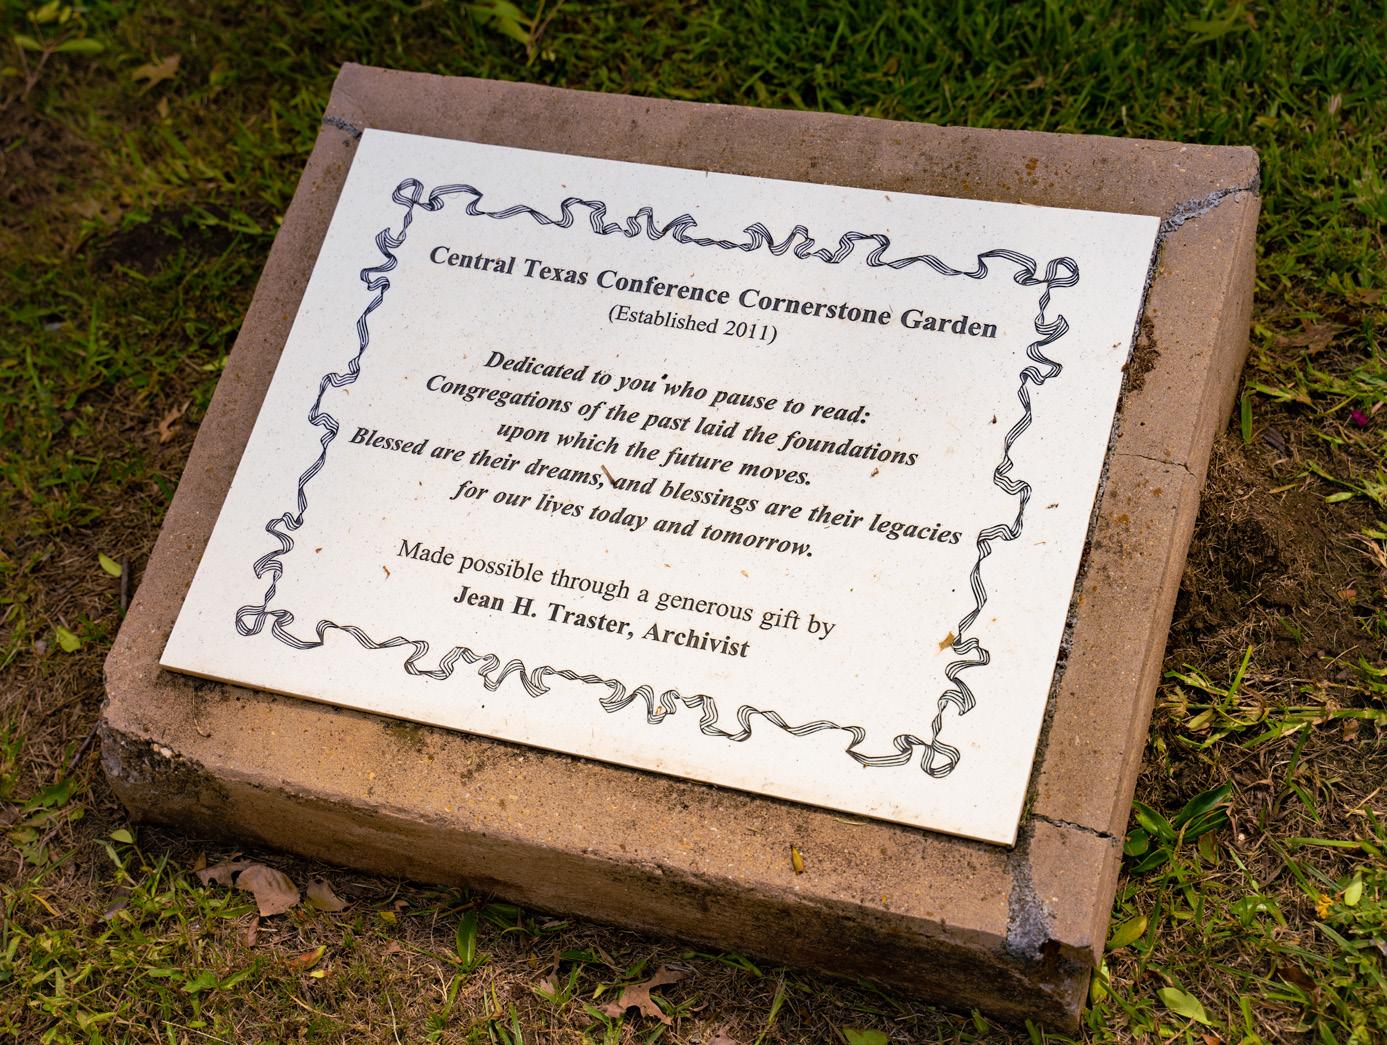 Central Texas Conference Cornerstone Garden
(Established 2011)
Dedicated to you who pause to read:
Congregations of the past laid the foundations
upon which the future moves.
Blessed are their dreams, and blessings are their legacies
for our lives today and tomorrow.
Made possible through a generous gift by
Jean H. Traster, Archivist